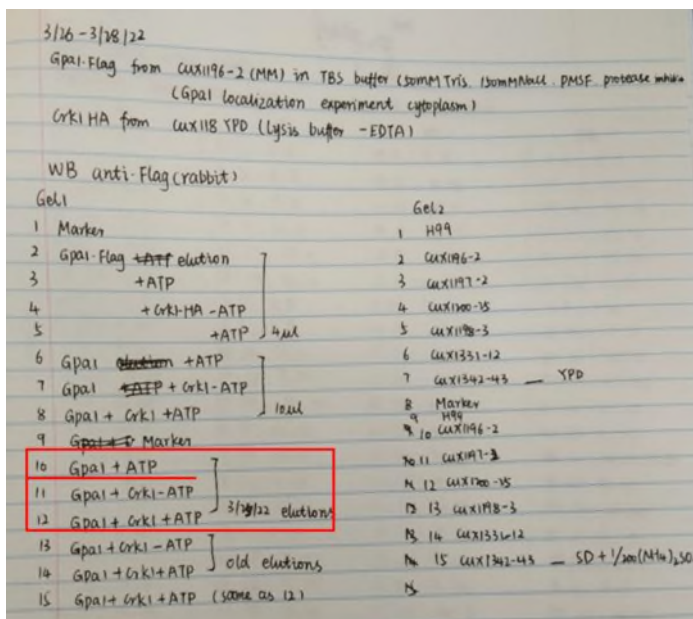 3/26 - 3/28/22
Gpa1-Flag from CUX1196-2 (MM) in TBS buffer (50mM Tris. 150mM NaCl. PMSF. protease
(Gpa1 localization experiment cytoplasm)
Crk1 HA from CUX118 YPD (Lysis buffer -EDTA)
WB anti-Flag (rabbit)
Gel1
1 Marker
2 Gpa1-Flag elution
3 +ATP
4 + Crk1-HA -ATP
5 +ATP 4μl
6 Gpa1 +ATP
7 Gpa1 + Crk1-ATP
8 Gpa1 + Crk1 +ATP 10μl
9 Marker
10 Gpa1 + ATP
11 Gpa1 + Crk1-ATP
12 Gpa1 + Crk1 +ATP elutions
13 Gpa1 + Crk1 -ATP
14 Gpa1 + Crk1 +ATP old elutions
15 Gpa1 + Crk1 +ATP (same as 12)
Gel2
1 H99
2 CUX1196-2
3 CUX1197-2
4 CUX1200-35
5 CUX1198-3
6 CUX1331-12
7 CUX1342-43 — YPD
8 Marker
9 H99
10 CUX1196-2
11
12 CUX1200-35
13 CUX1198-3
14 CUX1331-12
15 CUX1342-43 — SD + 1/200(NH4)2SO